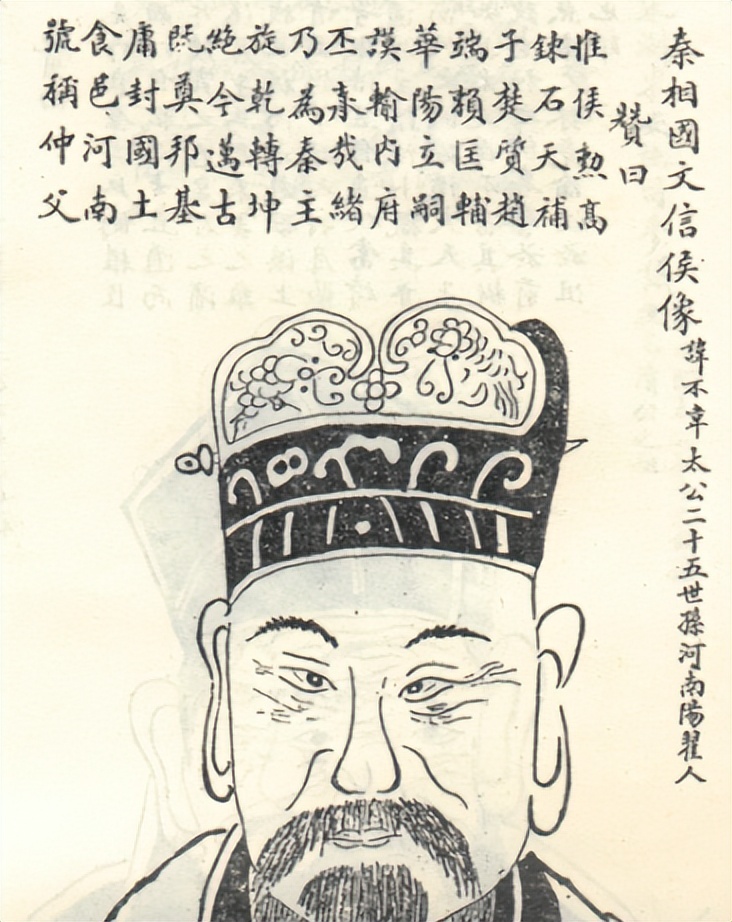 秦相國文信侯像 諱不韋太公二十五世孫河南陽翟人
贊曰
惟侯勲高
鍊石天補
子楚質趙
端賴匡輔
華陽立嗣
謨輸内府
丕承哉緒
乃為秦王
旋乾轉坤
絶今邁古
既奠邦基
庸封國土
食邑河南
號稱仲父